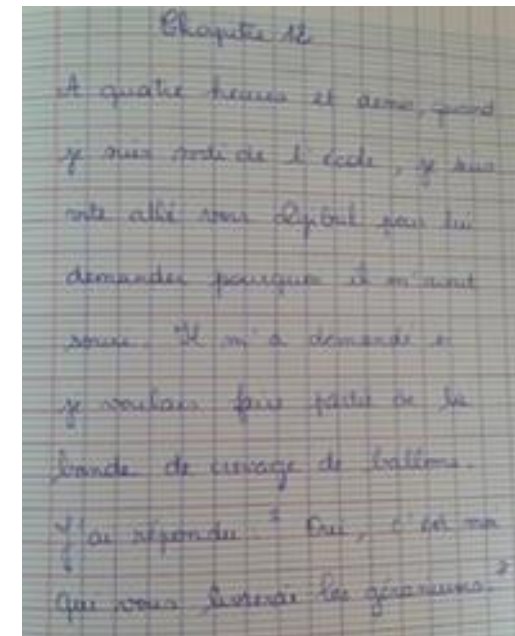 Chapitre 12
A quatre heures et demie, quand
je suis sorti de l'école, je suis
vite allé voir pour lui
demander pourquoi il m'avait
souri. Il m'a demandé si
je voulais faire partie de la
bande de crevage de ballons.
J'ai répondu : " Oui, c'est moi
qui vous livrerai les géraniums."